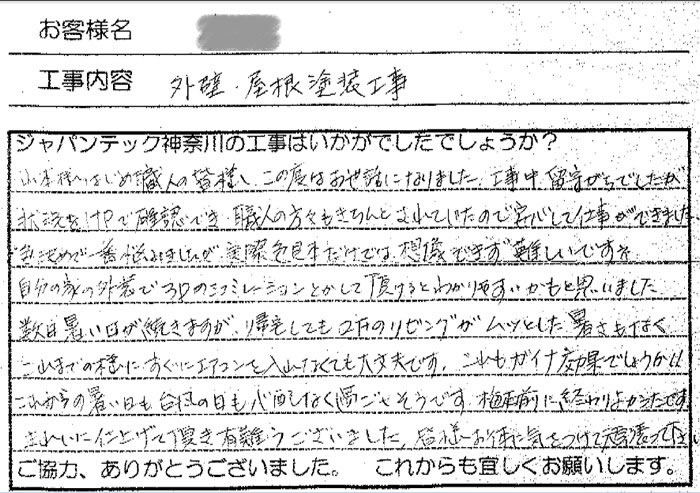 お客様名
工事内容 外壁・屋根塗装工事
ジャパンテック神奈川の工事はいかがでしたでしょうか?
山本様はじめ職人の皆様、この度はお世話になりました。工事中、留守がちでしたが
状況をHPで確認でき、職人の方々もきちんとされていたので安心して仕事ができました
色決めで一番悩みましたが、実際色見本だけでは想像できず難しいですネ
自分の家の外装で3Dのシュミレーションとかして頂けるとわかりやすいかもと思いました
数日暑い日が続きますが、帰宅しても2Fのリビングがムッとした暑さもなく
これまでの様にすぐにエアコンを入れなくても大丈夫です。これもガイナ効果でしょうか!!
これからの暑い日も台風の日も心配なく過ごせそうです。梅雨前に終わりよかったです
きれいに仕上げて頂き有難うございました。皆様お体に気をつけて頑張って下さい
ご協力、ありがとうございました。 これからも宜しくお願いします。